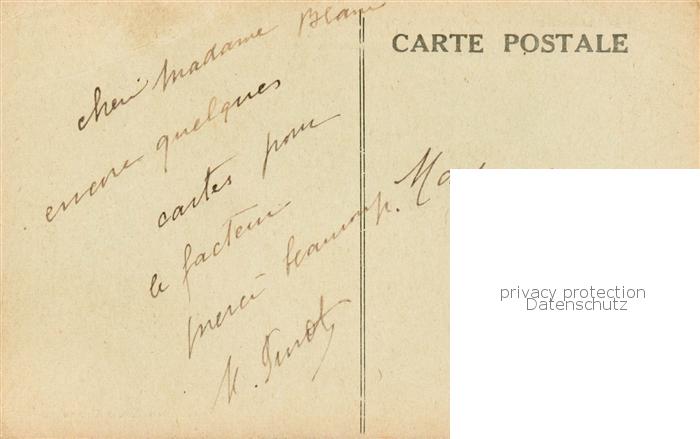 CARTE POSTALE
cheri Madame Blanc
encore quelques
cartes pour
le facteur
merci beaucoup.
privacy protection
Datenschutz